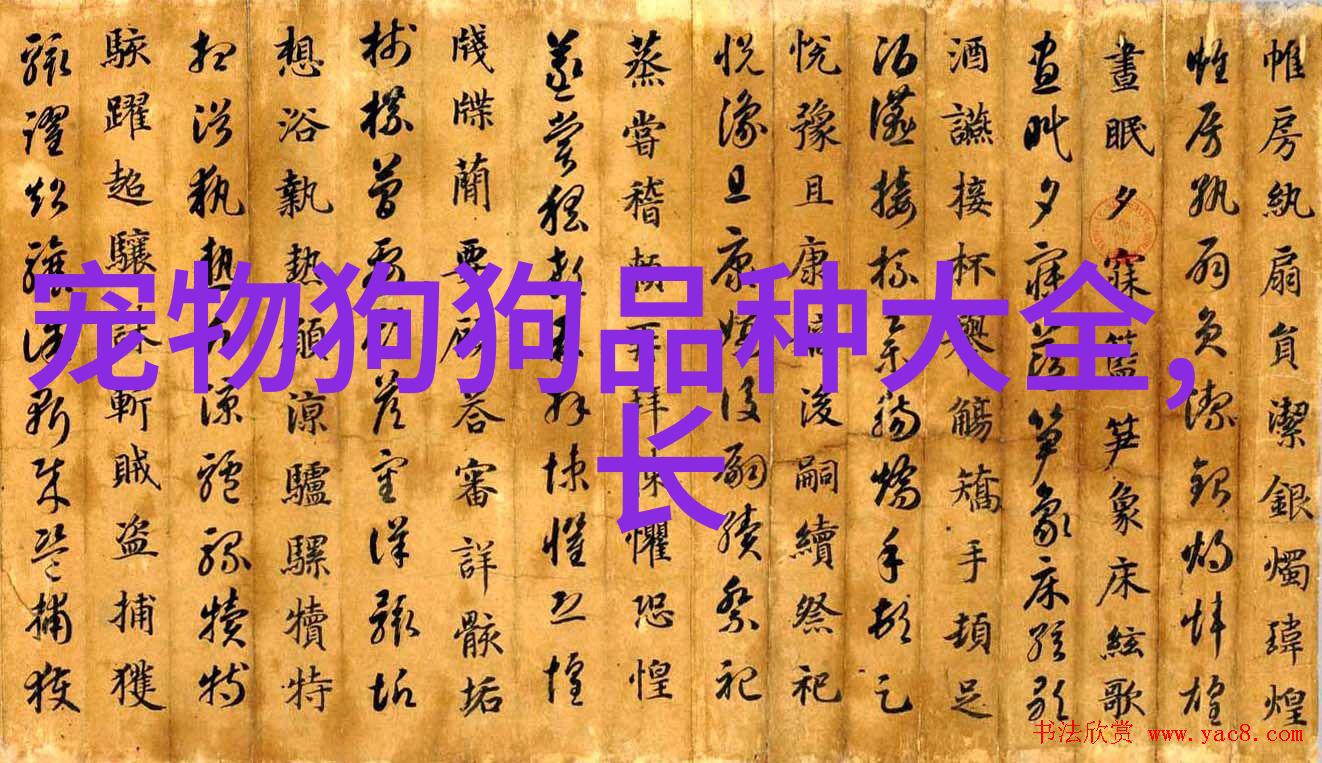 宠物狗狗品种大全,
长
帷房紈扇員潔銀燭瑋煌
帷房紈扇員潔銀燭煒煌
晝眠夕寐籃笋象床絃歌
晝眠夕寐藍笋象床絃歌
酒讌接杯舉觴矯手頓足
酒讌接杯舉觴矯手頓足
悅豫且康嫡後嗣續祭祀
悅豫且康嫡後嗣續祭祀
蒸嘗稽顙再拜悚懼恐惶
蒸嘗稽顙再拜悚懼恐惶
牋牒簡要顧答審詳骸垢
牋牒簡要顧答審詳骸垢
想浴執熱願涼驢騾犢特
想浴執熱願涼驢騾犢特
駭躍超驤誅斬賊盗捕獲
駭躍超驤誅斬賊盗捕獲
书法欣赏 www.yac8.com